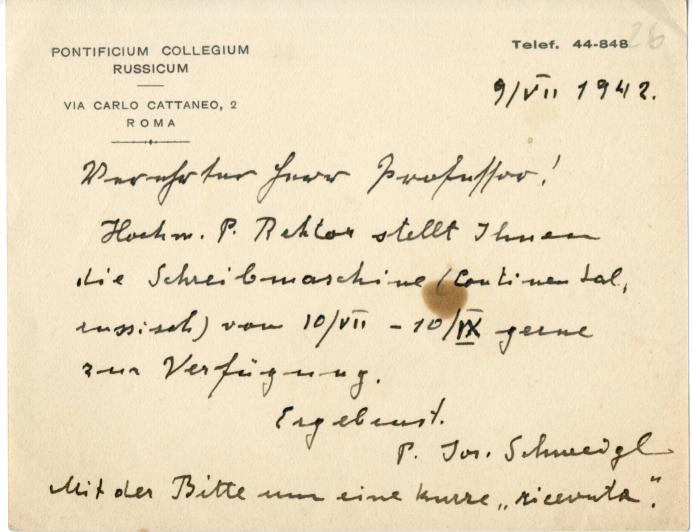 PONTIFICIUM COLLEGIUM
RUSSICUM
VIA CARLO CATTANEO, 2
ROMA
Telef. 44-848
26
9/VII 1942.
Verehrter Herr Professor!
Hochw. P. Rektor stellt Ihnen
die Schreibmaschine (Continental,
russisch) vom 10/VII - 10/IX gerne
zur Verfügung.
Ergebenst.
P. Jos. Schweigl
Mit der Bitte um eine kurze „ricevuta“.